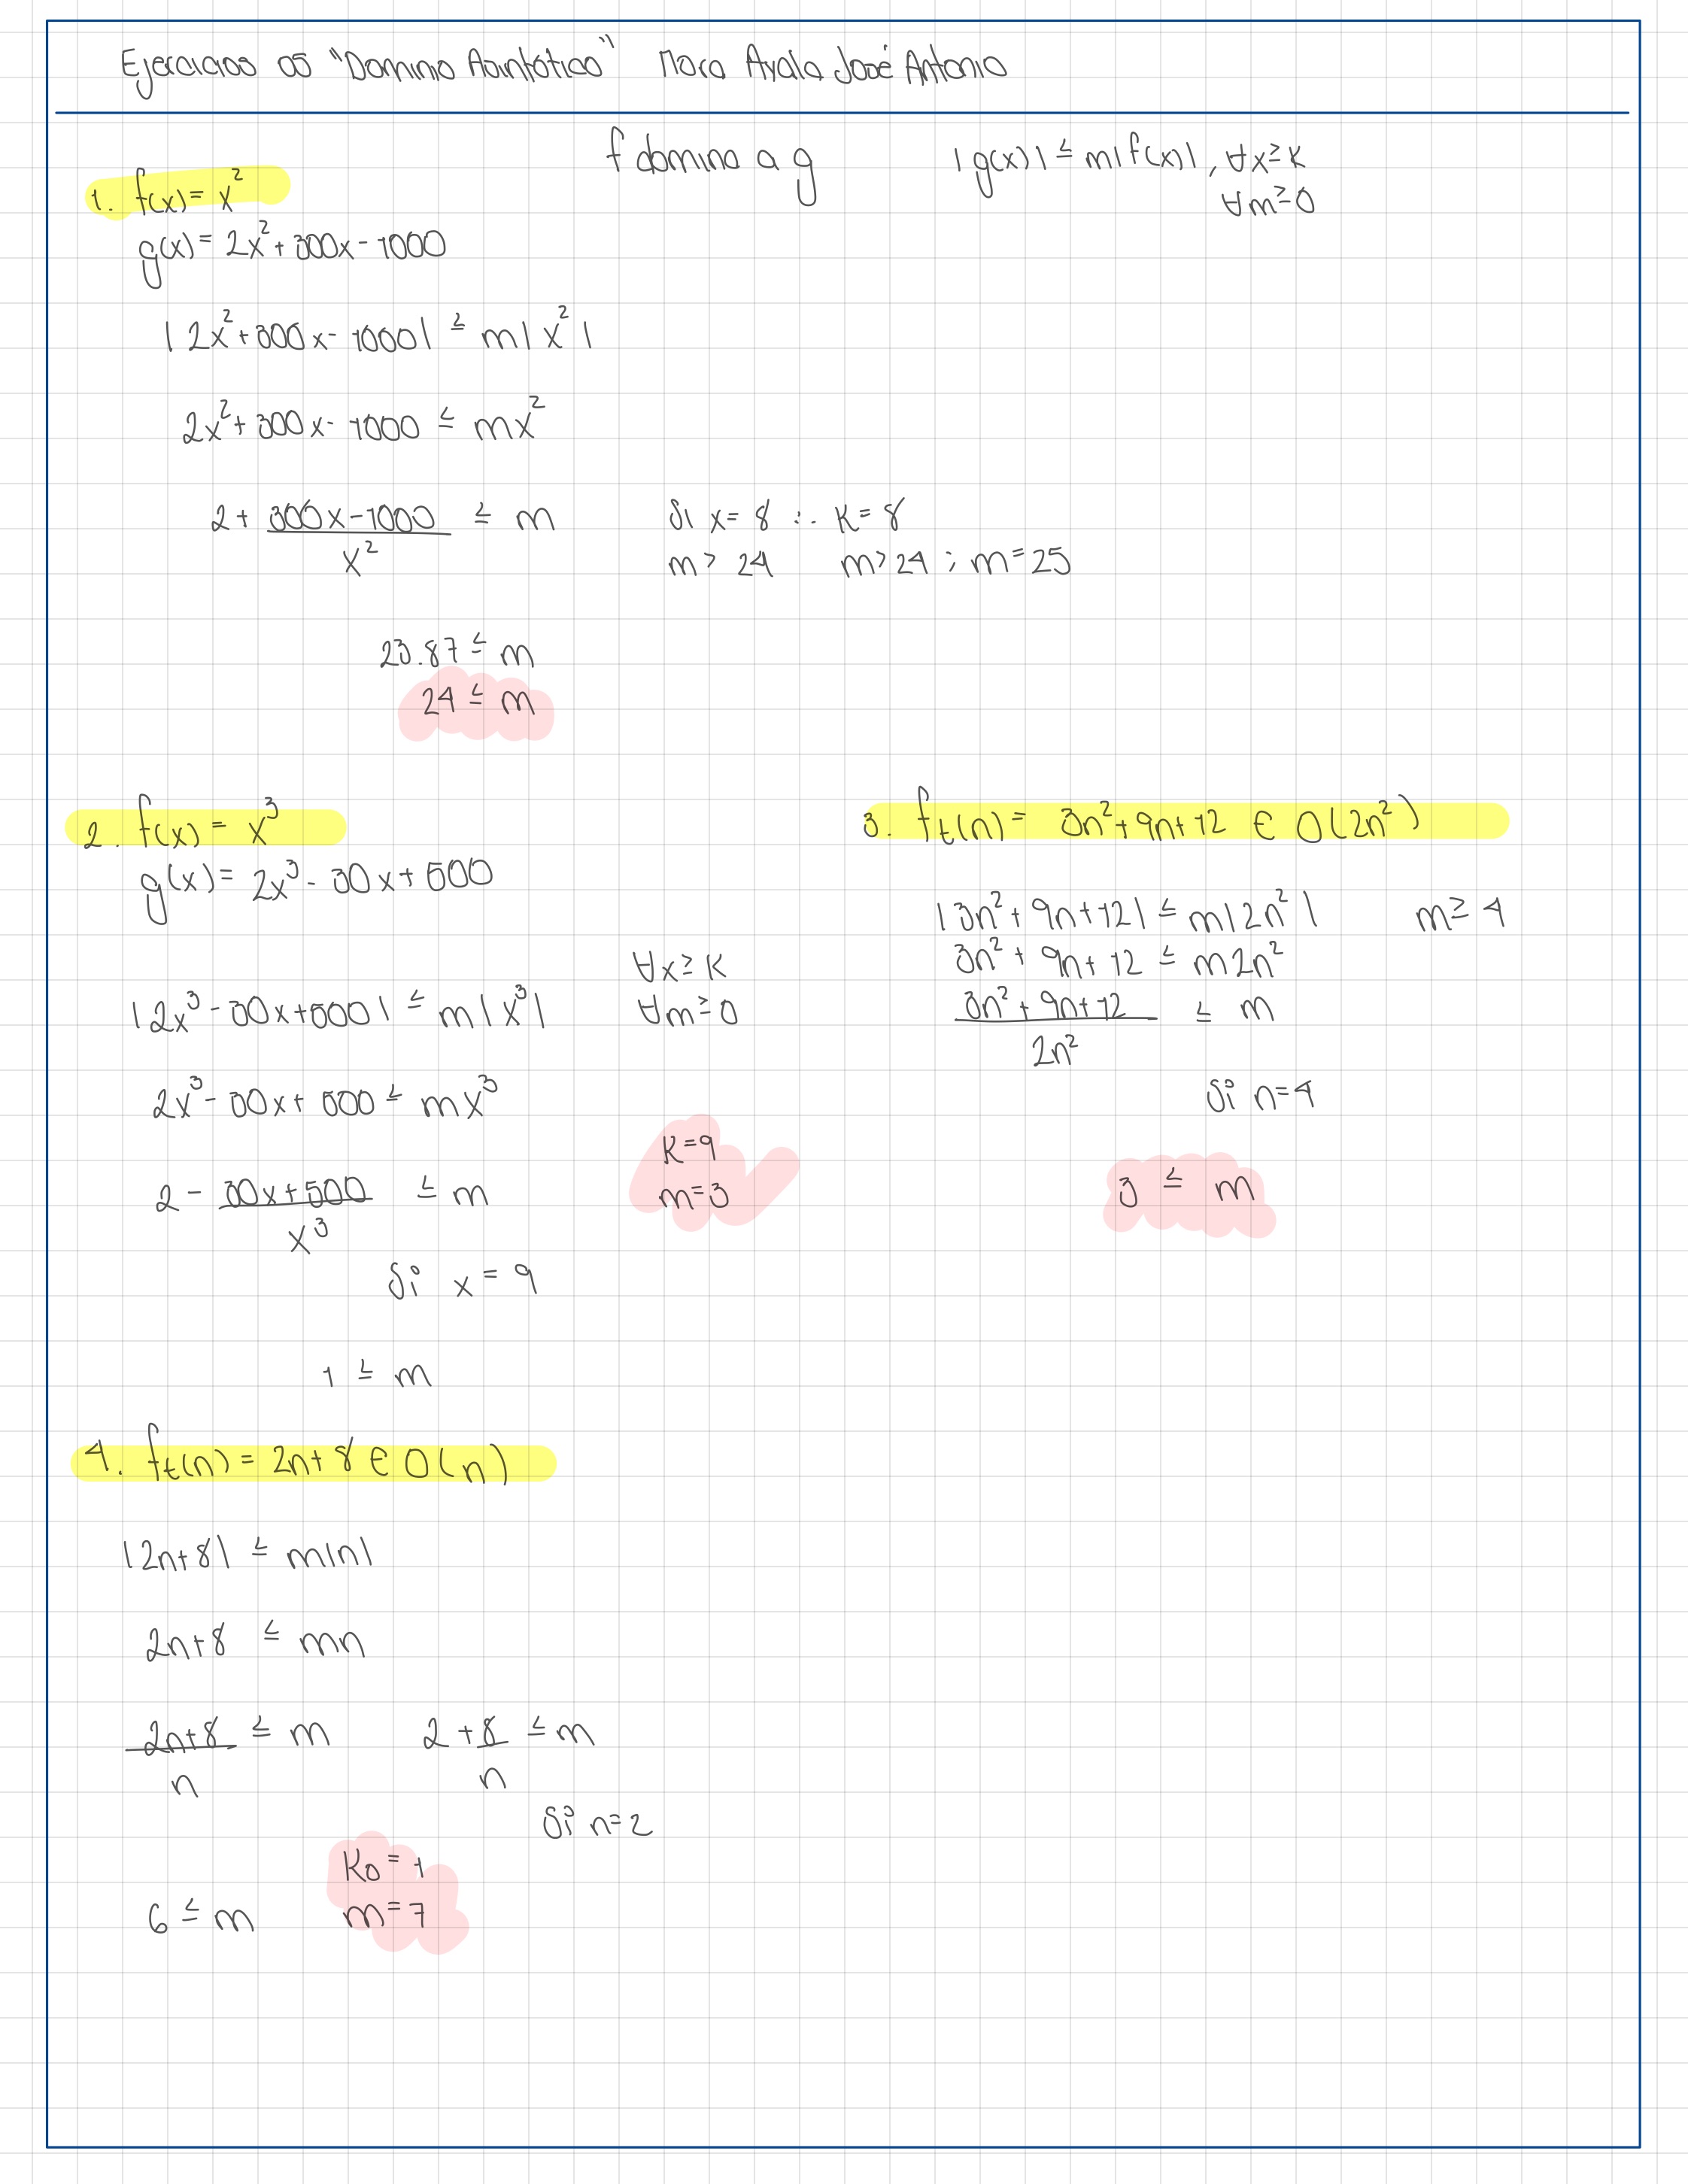 Ejercicios 05 "Dominio Asintótico" Mora Ayala José Antonio
f domina a g |g(x)| ≤ m|f(x)|, ∀x≥K
∀m≥0
1. f(x) = x²
g(x) = 2x² + 300x - 1000
|2x² + 300x - 1000| ≤ m|x²|
2x² + 300x - 1000 ≤ mx²
2 + (300x - 1000)/x² ≤ m
Si x = 8 ∴ K = 8
m > 24 m > 24 ; m = 25
23.87 ≤ m
24 ≤ m
2. f(x) = x³
g(x) = 2x³ - 30x + 500
∀x≥K
∀m≥0
|2x³ - 30x + 500| ≤ m|x³|
2x³ - 30x + 500 ≤ mx³
2 - (30x + 500)/x³ ≤ m
K = 9
m = 3
Si x = 9
1 ≤ m
3. ft(n) = 3n² + 9n + 12 ∈ O(2n²)
|3n² + 9n + 12| ≤ m|2n²| m ≥ 4
3n² + 9n + 12 ≤ m2n²
(3n² + 9n + 12)/2n² ≤ m
Si n = 4
3 ≤ m
4. ft(n) = 2n + 8 ∈ O(n)
|2n + 8| ≤ m|n|
2n + 8 ≤ mn
(2n + 8)/n ≤ m 2 + 8/n ≤ m
Si n = 2
Ko = 1
6 ≤ m m = 7